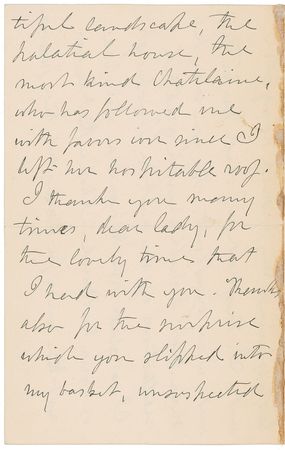 tiful landscape, the
palatial house, the
most kind Chatelaine,
who has followed me
with favors ever since I
left her hospitable roof.
I thank you many
times, dear lady, for
the lovely times that
I had with you. Thanks
also for the surprise
which you slipped into
my basket, unsuspected